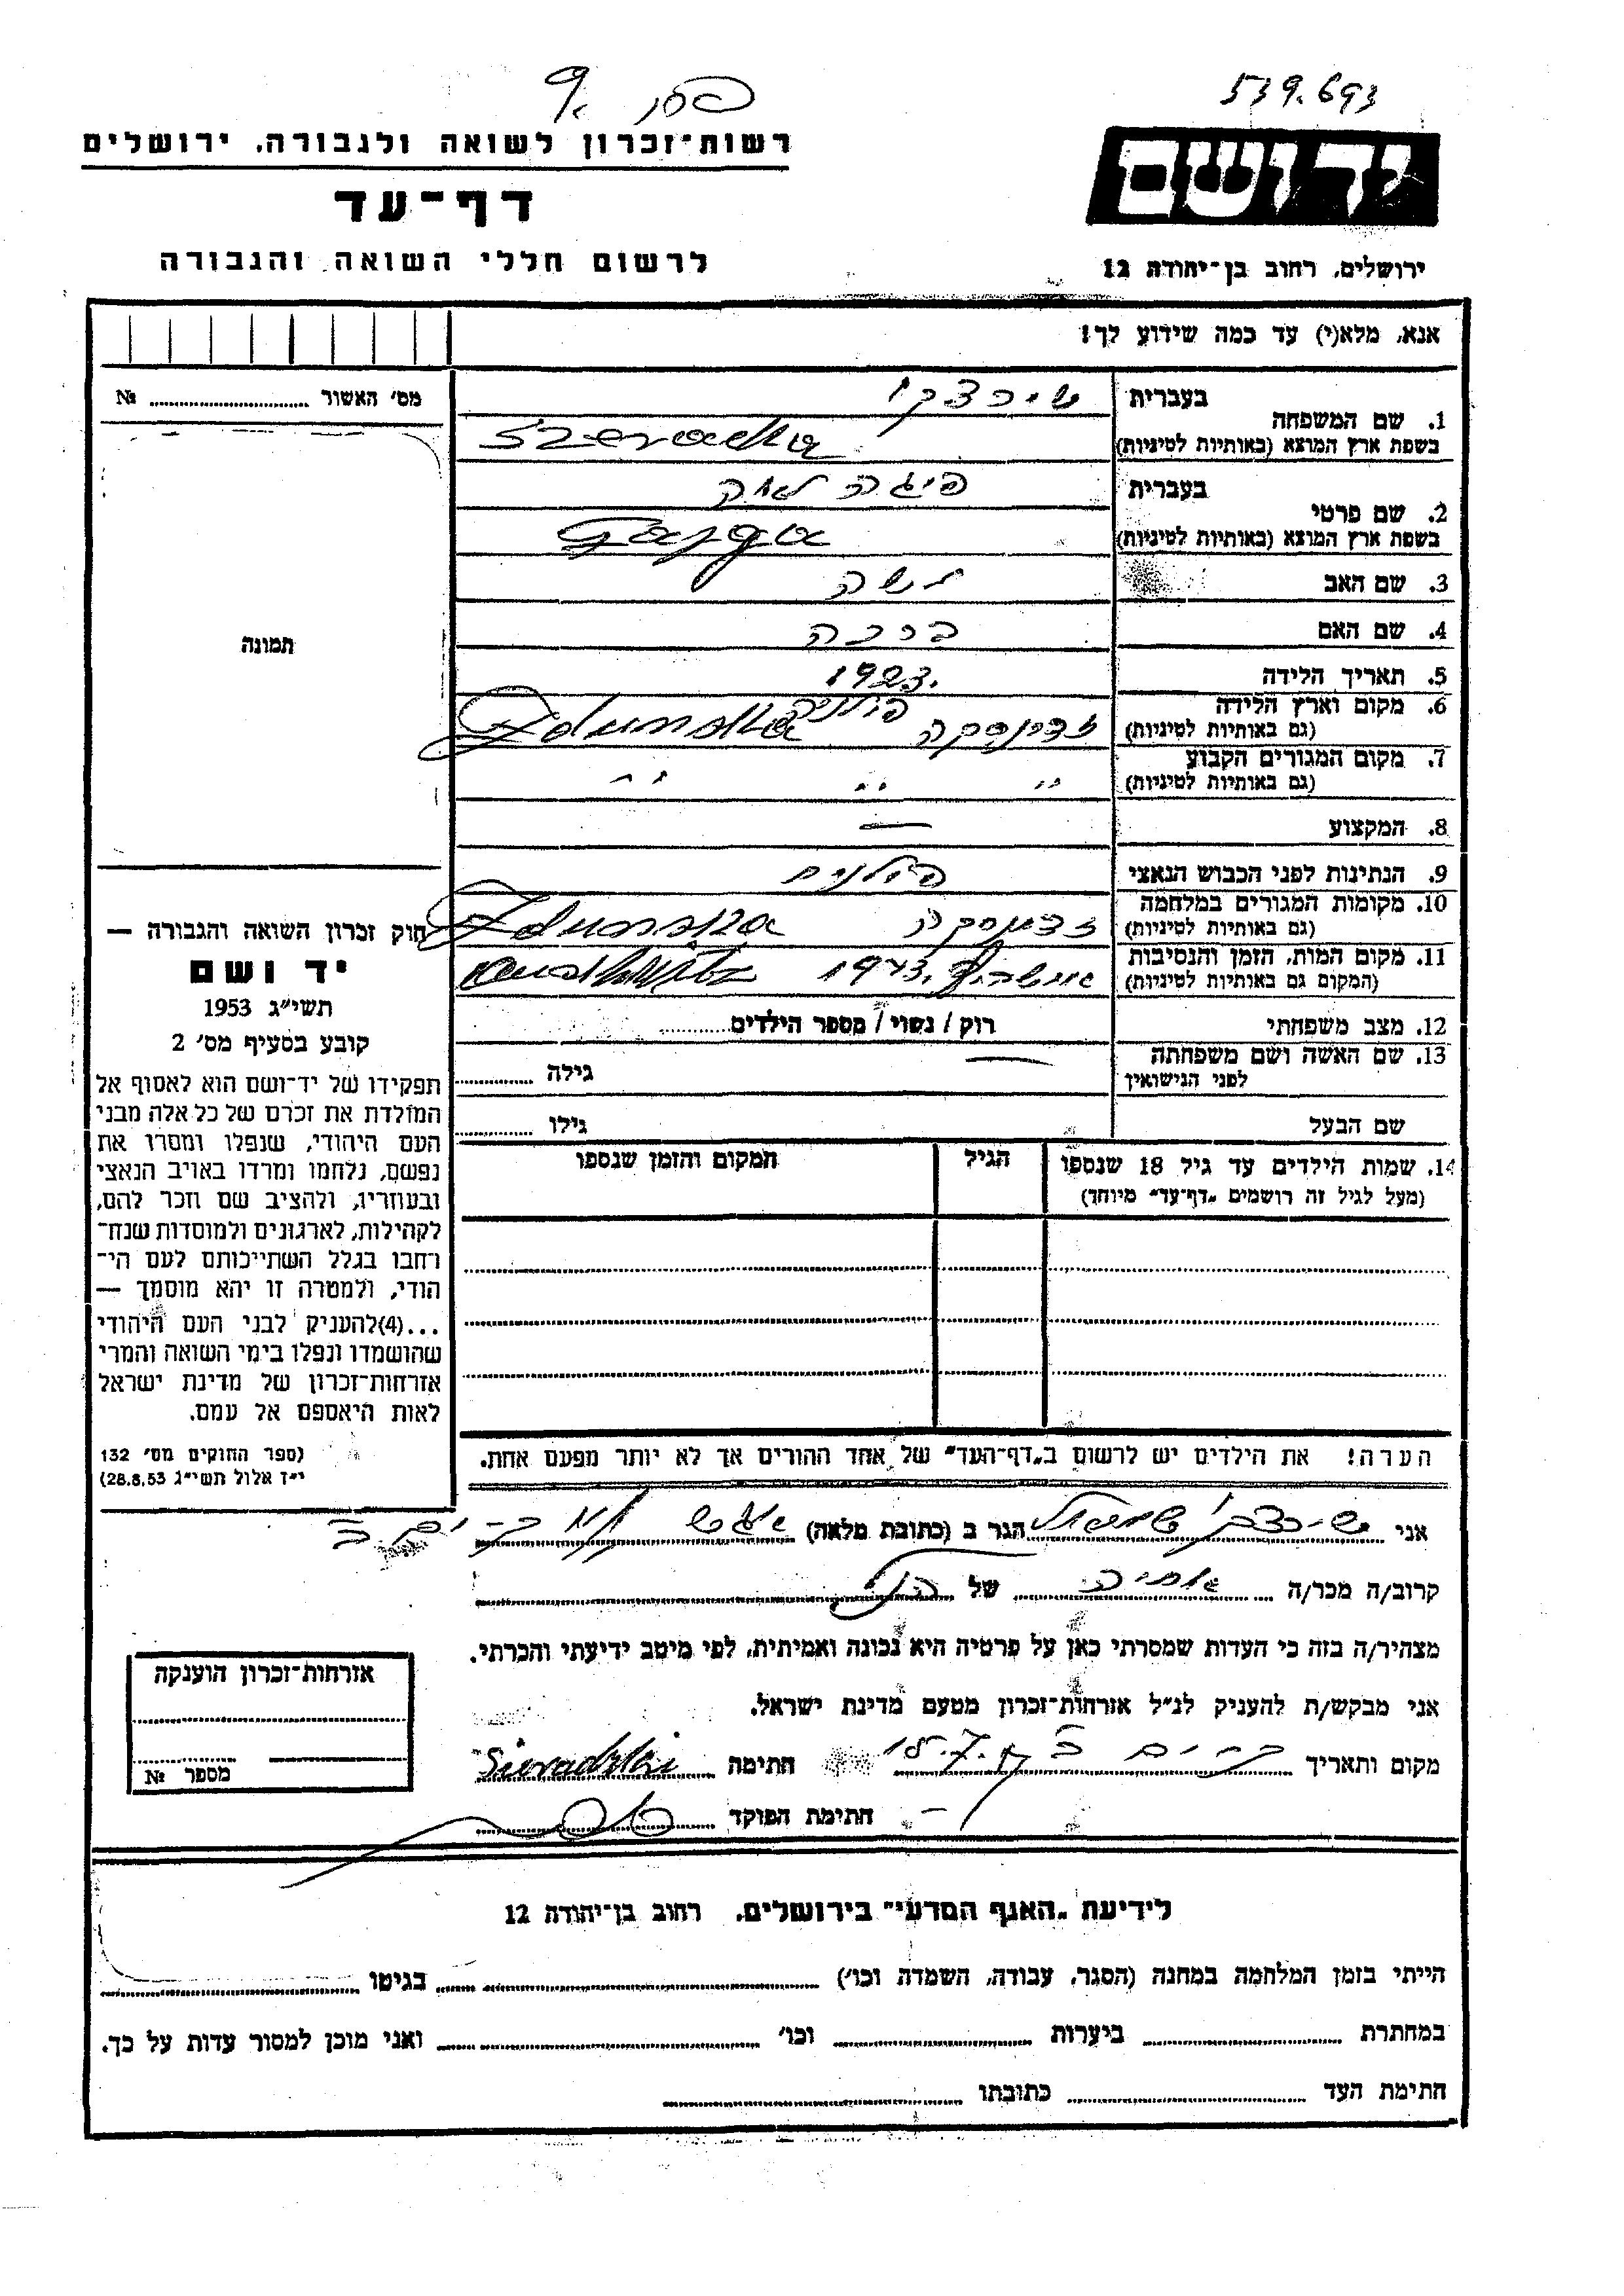 539.693
רשות־זכרון לשואה ולגבורה, ירושלים
דף־עד
לרשום חללי השואה והגבורה
יד ושם
ירושלים, רחוב בן־יהודה 12
אנא, מלא(י) עד כמה שידוע לך!
מס' האשור ........ №
תמונה
1. שם המשפחה בעברית שירצקי
בשפת ארץ המוצא (באותיות לטיניות) Szeradka
2. שם פרטי בעברית פיגה לאה
בשפת ארץ המוצא (באותיות לטיניות) Fajga
3. שם האב משה
4. שם האם ברכה
5. תאריך הלידה 1923.
6. מקום וארץ הלידה (גם באותיות לטיניות) זדונסקה פולניה Zdunska
7. מקום המגורים הקבוע (גם באותיות לטיניות) " " "
8. המקצוע —
9. הנתינות לפני הכבוש הנאצי פולנית
10. מקומות המגורים במלחמה (גם באותיות לטיניות) זדונסקה Zdunska
11. מקום המות, הזמן והנסיבות (המקום גם באותיות לטיניות) 1943.
12. מצב משפחתי רוק / נשוי / מספר הילדים........
13. שם האשה ושם משפחתה לפני הנישואין — גילה ........
שם הבעל גילו ........
14. שמות הילדים עד גיל 18 שנספו (מעל לגיל זה רושמים „דף־עד” מיוחד) הגיל המקום והזמן שנספו
הערה! את הילדים יש לרשום ב„דף־העד” של אחד ההורים אך לא יותר מפעם אחת.
חוק זכרון השואה והגבורה —
יד ושם
תשי״ג 1953
קובע בסעיף מס' 2
תפקידו של יד־ושם הוא לאסוף אל
המולדת את זכרם של כל אלה מבני
העם היהודי, שנפלו ומסרו את
נפשם, נלחמו ומרדו באויב הנאצי
ובעוזריו, ולהציב שם וזכר להם,
לקהילות, לארגונים ולמוסדות שנח־
רבו בגלל השתייכותם לעם הי־
הודי, ולמטרה זו יהא מוסמך —
...(4)להעניק לבני העם היהודי
שהושמדו ונפלו בימי השואה והמרי
אזרחות־זכרון של מדינת ישראל
לאות היאספם אל עמם.
(ספר החוקים מס' 132
י״ז אלול תשי״ג 28.8.53)
אני שירצקי שמואל הגר ב (כתובת מלאה) בת־ים
קרוב/ה מכר/ה אחיה של הנ״ל
מצהיר/ה בזה כי העדות שמסרתי כאן על פרטיה היא נכונה ואמיתית, לפי מיטב ידיעתי והכרתי.
אני מבקש/ת להעניק לנ״ל אזרחות־זכרון מטעם מדינת ישראל.
מקום ותאריך בת־ים חתימה Sieradzki
חתימת הפוקד
אזרחות־זכרון הוענקה
מספר №
לידיעת „האגף המדעי” בירושלים, רחוב בן־יהודה 12
הייתי בזמן המלחמה במחנה (הסגר, עבודה, השמדה וכו') ........ בגיטו ........
במחתרת ........ ביערות ........ וכו' ........ ואני מוכן למסור עדות על כך.
חתימת העד ........ כתובתו ........